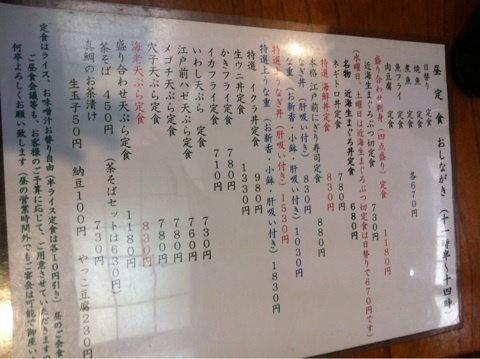 昼 定 食 おしながき (十一時半~十四時)
日替り 定食
焼魚 定食
煮魚 定食
魚フライ 定食
肉豆腐 定食
各670円
盛り合わせ刺身(四点盛り)定食 1180円
近海生まぐろぶつ切定食 730円
(水曜日、土曜日は近海生まぐろぶつ切定食は日替りで670円です)
名物 近海生まぐろ丼定食 680円
ネギトロ丼定食 780円
特選 海鮮丼定食 830円
本格 江戸前にぎり寿司定食 880円
うなぎ丼(肝吸い付き) 830円
うな重(お新香・小鉢・肝吸い付き) 1030円
特選うなぎ丼(肝吸い付き) 1530円
特選上うな重(お新香・小鉢・肝吸い付き) 1830円
特選 ウニイクラ丼定食 980円
生ウニ丼定食 910円
かきフライ定食 780円
イカフライ定食 710円
いわし天ぷら 定食 730円
江戸前ハゼ天ぷら定食 760円
メゴチ天ぷら定食 780円
穴子天ぷら定食 780円
海老天ぷら定食 830円
盛り合わせ天ぷら定食 1180円
茶そば 450円 (茶そばセットは630円)
真鯛のお茶漬け 730円
生玉子50円 納豆100円 やっこ豆腐230円
定食はライス、お味噌汁お替り自由(半ライス定食は各10円引き) 昼のご会食
ご昼食会議等も、お客様のご予算に応じて、ご用意させていただきますので
何卒よろしくお願い致します(昼の営業時間外でもご宴会は可能で御座い